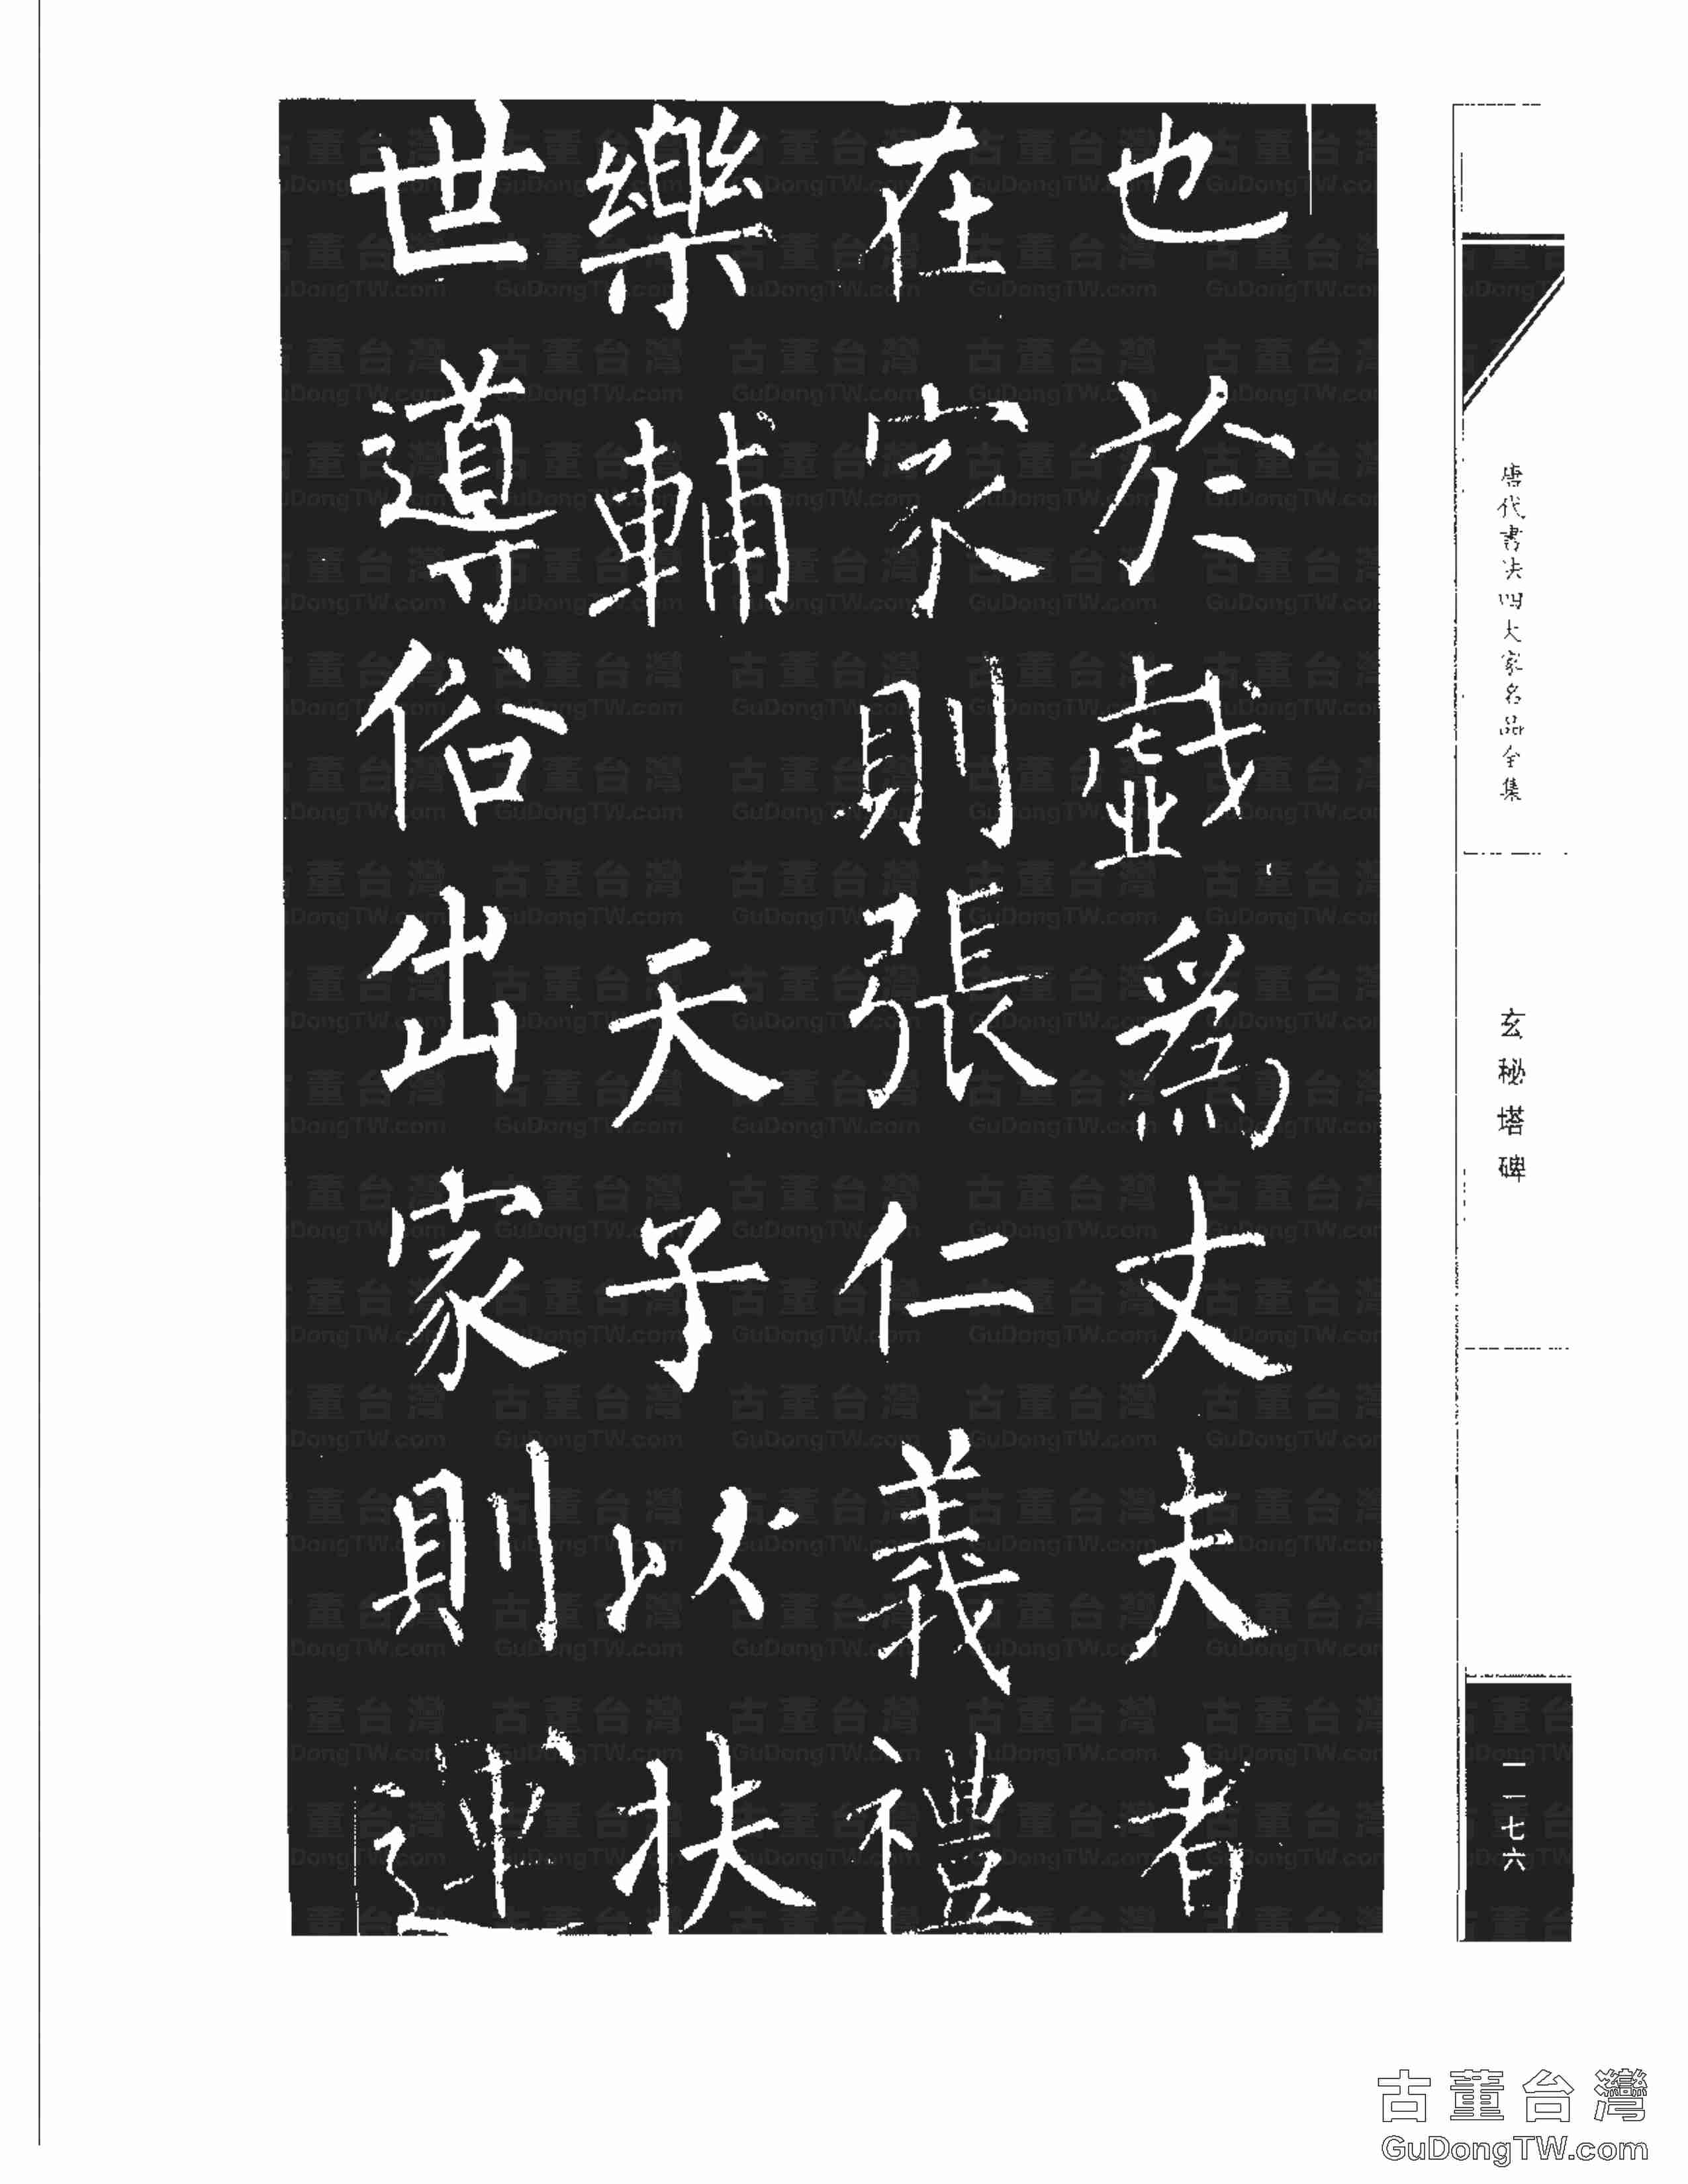 也於戲為丈夫者
在家則張仁義禮
樂輔天子以扶
世導俗出家則運
唐代書法四大家名品全集
玄秘塔碑
一一七六
古董台灣
GuDongTW.com